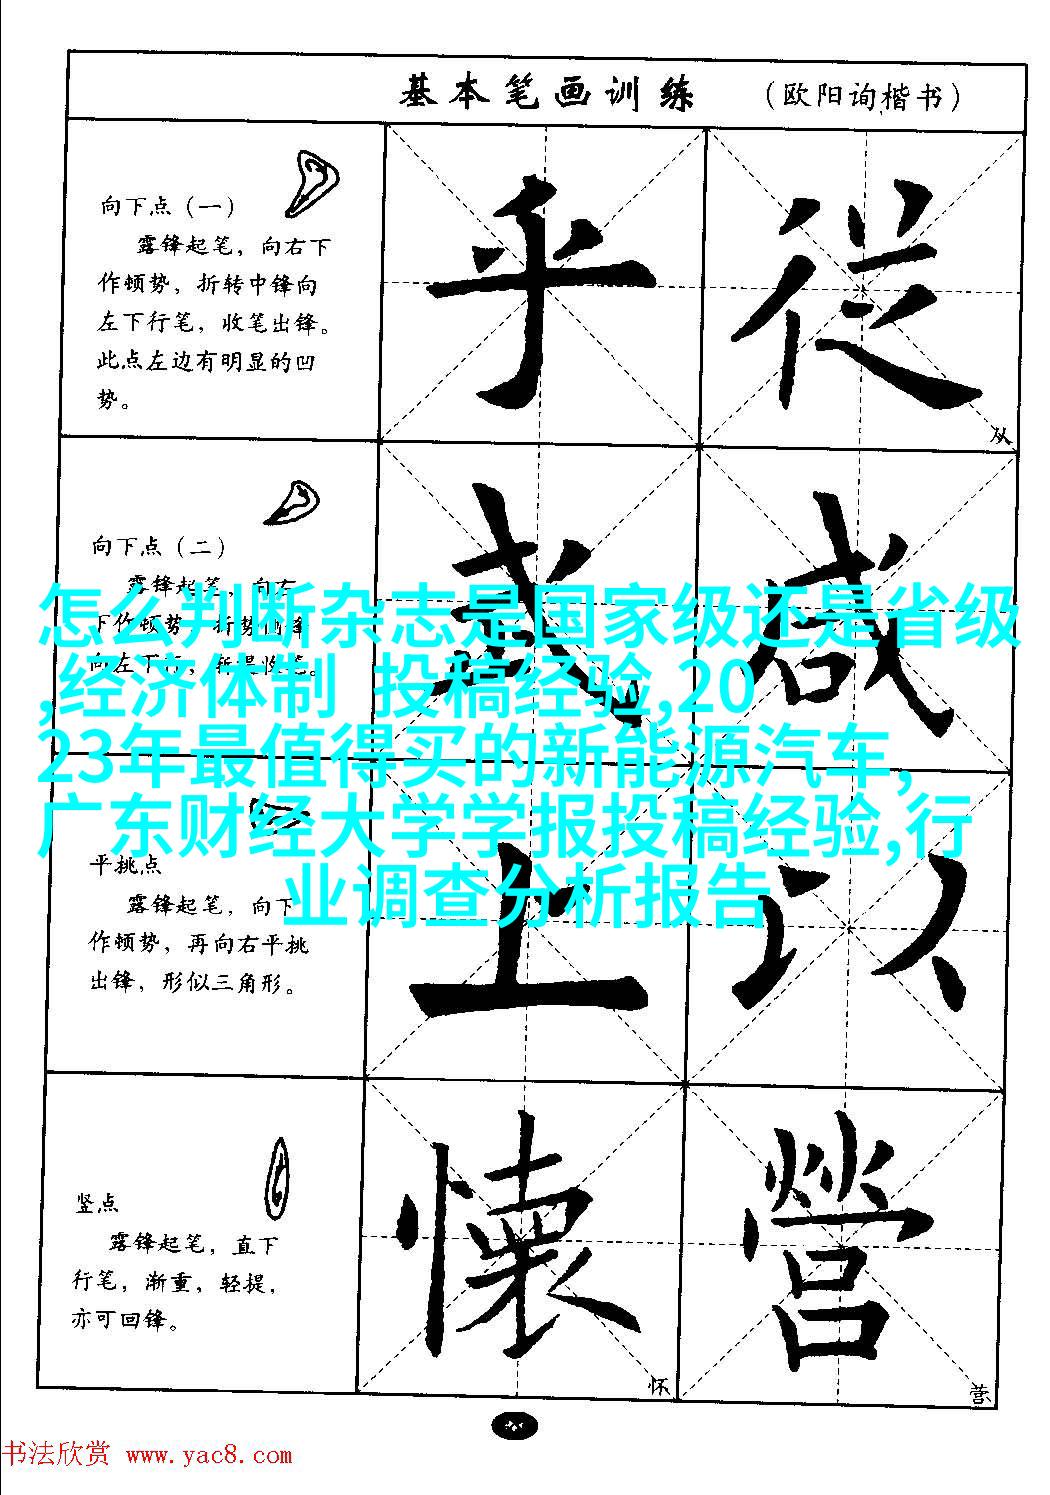 基本笔画训练 （欧阳询楷书）
向下点（一）
露锋起笔，向右下
作顿势，折转中锋向
左下行笔，收笔出锋。
此点左边有明显的凹
势。
乎 從
从
向下点（二）
露锋起笔，向右
下作顿势，折势侧锋
向左下行，渐提收笔。
武 咸
怎么判断杂志是国家级还是省级
,经济体制 投稿经验,20
23年最值得买的新能源汽车,
广东财经大学学报投稿经验,行
业调查分析报告
平挑点
露锋起笔，向下
作顿势，再向右平挑
出锋，形似三角形。
上 以
竖点
露锋起笔，直下
行笔，渐重，轻提，
亦可回锋。
懷 營
怀 营
书法欣赏 www.yac8.com